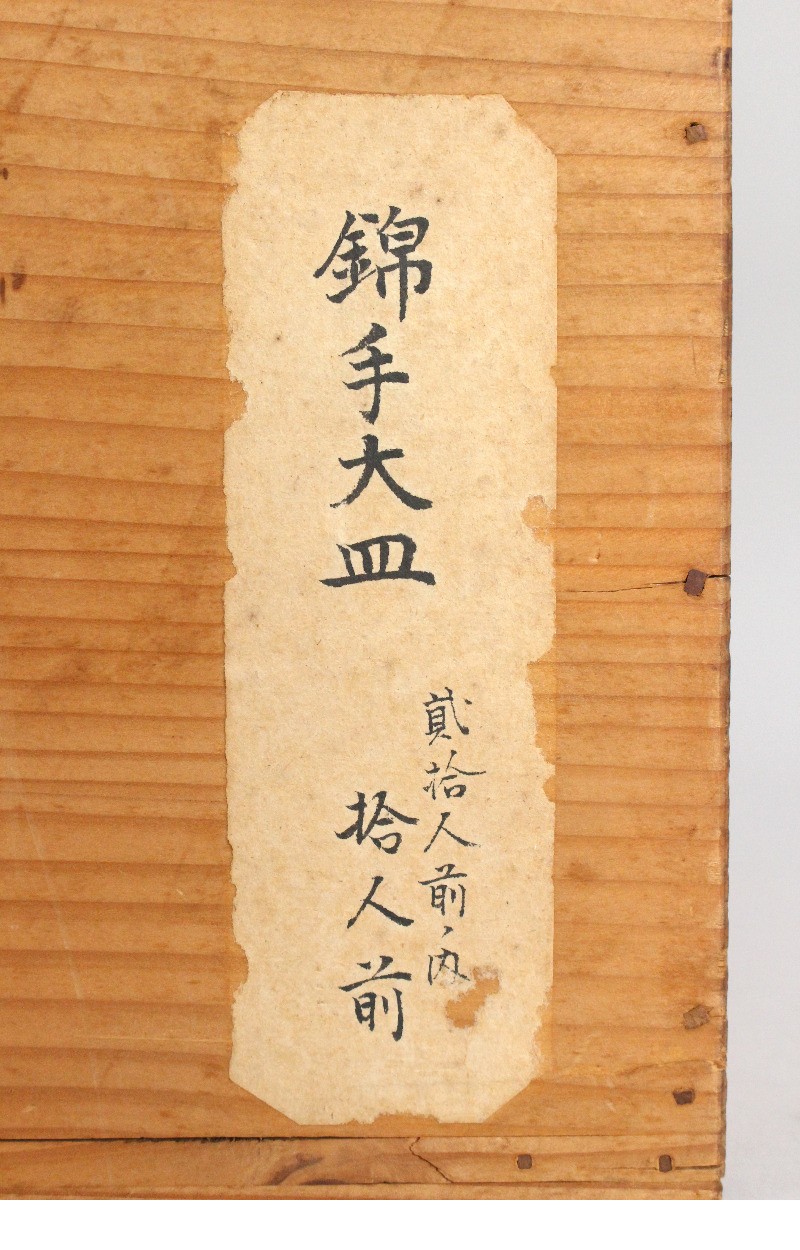 錦手大皿
貳拾人前ノ内
拾人前